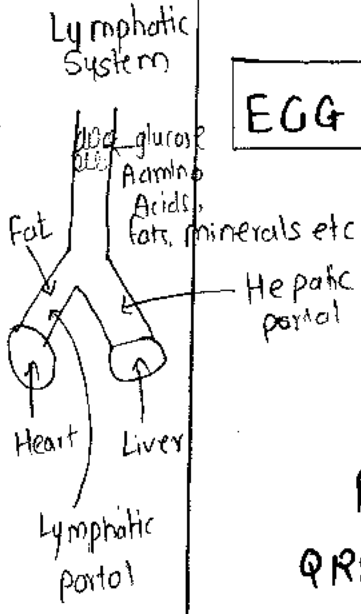 Lymphatic
System
glucose
Aamino
Acids,
fats, minerals etc
Fat
Hepatic
portal
Heart
Liver
Lymphatic
portol
ECG
QRS